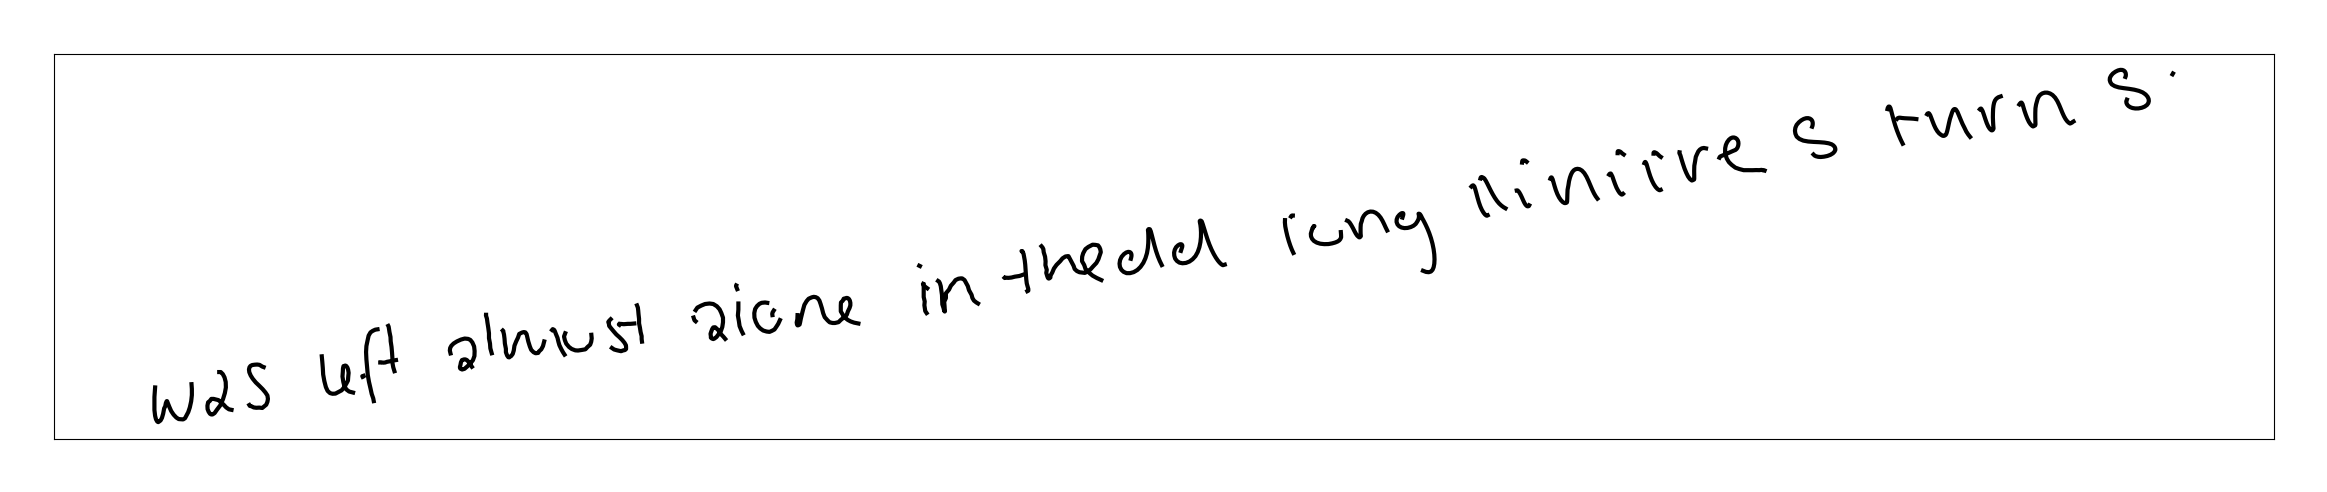 was left almost alone in the dd long liniire s turn s.